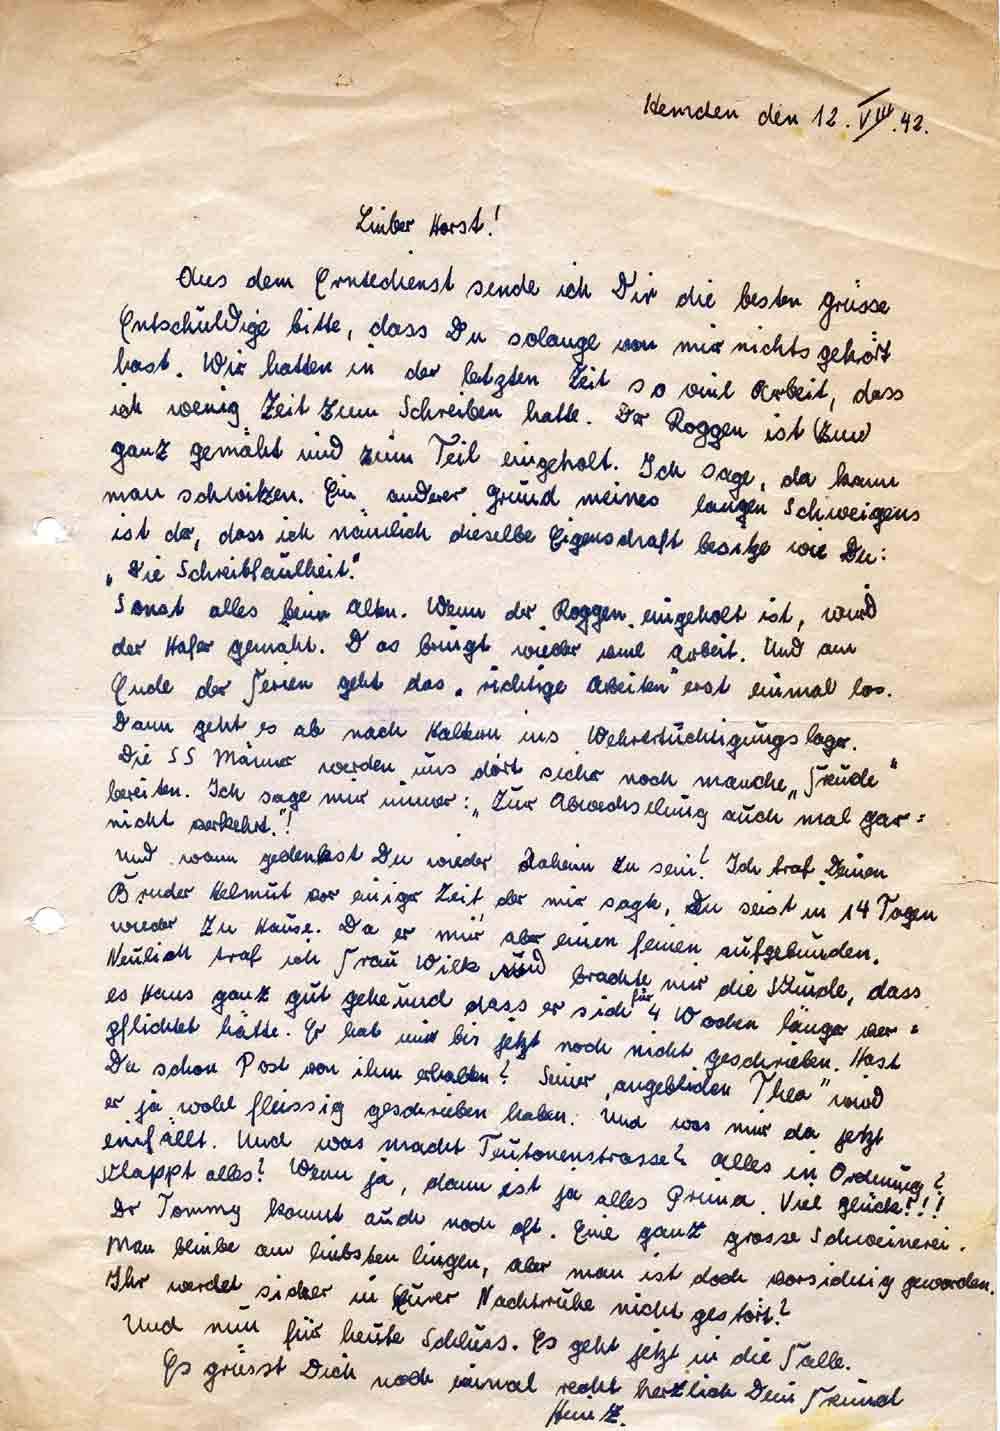 Hemden den 12. VIII. 42.
Lieber Horst!
Aus dem Erntedienst sende ich Dir die besten Grüsse
Entschuldige bitte, dass Du solange von mir nichts gehört
hast. Wir hatten in der letzten Zeit so viel Arbeit, dass
ich wenig Zeit zum Schreiben hatte. Der Roggen ist
ganz gemäht und zum Teil eingeholt. Ich sage, da kann
man schwitzen. Ein anderer Grund meines langen Schweigens
ist der, dass ich nämlich dieselbe Eigenschaft besitze wie Du:
„Die Schreibfaulheit."
Sonst alles beim Alten. Wenn der Roggen eingeholt ist, wird
der Hafer gemäht. Das bringt wieder viel Arbeit. Und am
Ende der Ferien geht das „richtige Arbeiten" erst einmal los.
Dann geht es ab nach Haltern ins Wehrertüchtigungslager.
Die SS Männer werden uns dort sicher noch manche „Freude"
bereiten. Ich sage mir immer: „Zur Abwechselung auch mal gar=
nicht verkehrt."!
Und wann gedenkst Du wieder daheim zu sein? Ich traf Deinen
Bruder Helmut vor einiger Zeit, der mir sagte, Du seist in 14 Tagen
wieder zu Hause. Da er mir aber einen feinen aufgebunden.
Neulich traf ich Frau Wilk und brachte mir die Kunde, dass
es Hans ganz gut gehe und dass er sich für 4 Wochen länger ver=
pflichtet hätte. Er hat mir bis jetzt noch nicht geschrieben. Hast
Du schon Post von ihm erhalten? Seiner „angeblichen Thea" wird
er ja wohl fleissig geschrieben haben. Und was mir da jetzt
einfällt. Und was macht Teutonenstrasse? Alles in Ordnung?
Klappt alles? Wenn ja, dann ist ja alles Prima. Viel Glück!!!
Dr Tommy kommt auch noch oft. Eine ganz grosse Schweinerei.
Man bleibe am liebsten liegen, aber man ist doch vorsichtig geworden.
Ihr werdet sicher in Eurer Nachtruhe nicht gestört?
Und nun für heute Schluss. Es geht jetzt in die Falle.
Es grüsst Dich noch einmal recht herzlich Dein Freund
Heinz.